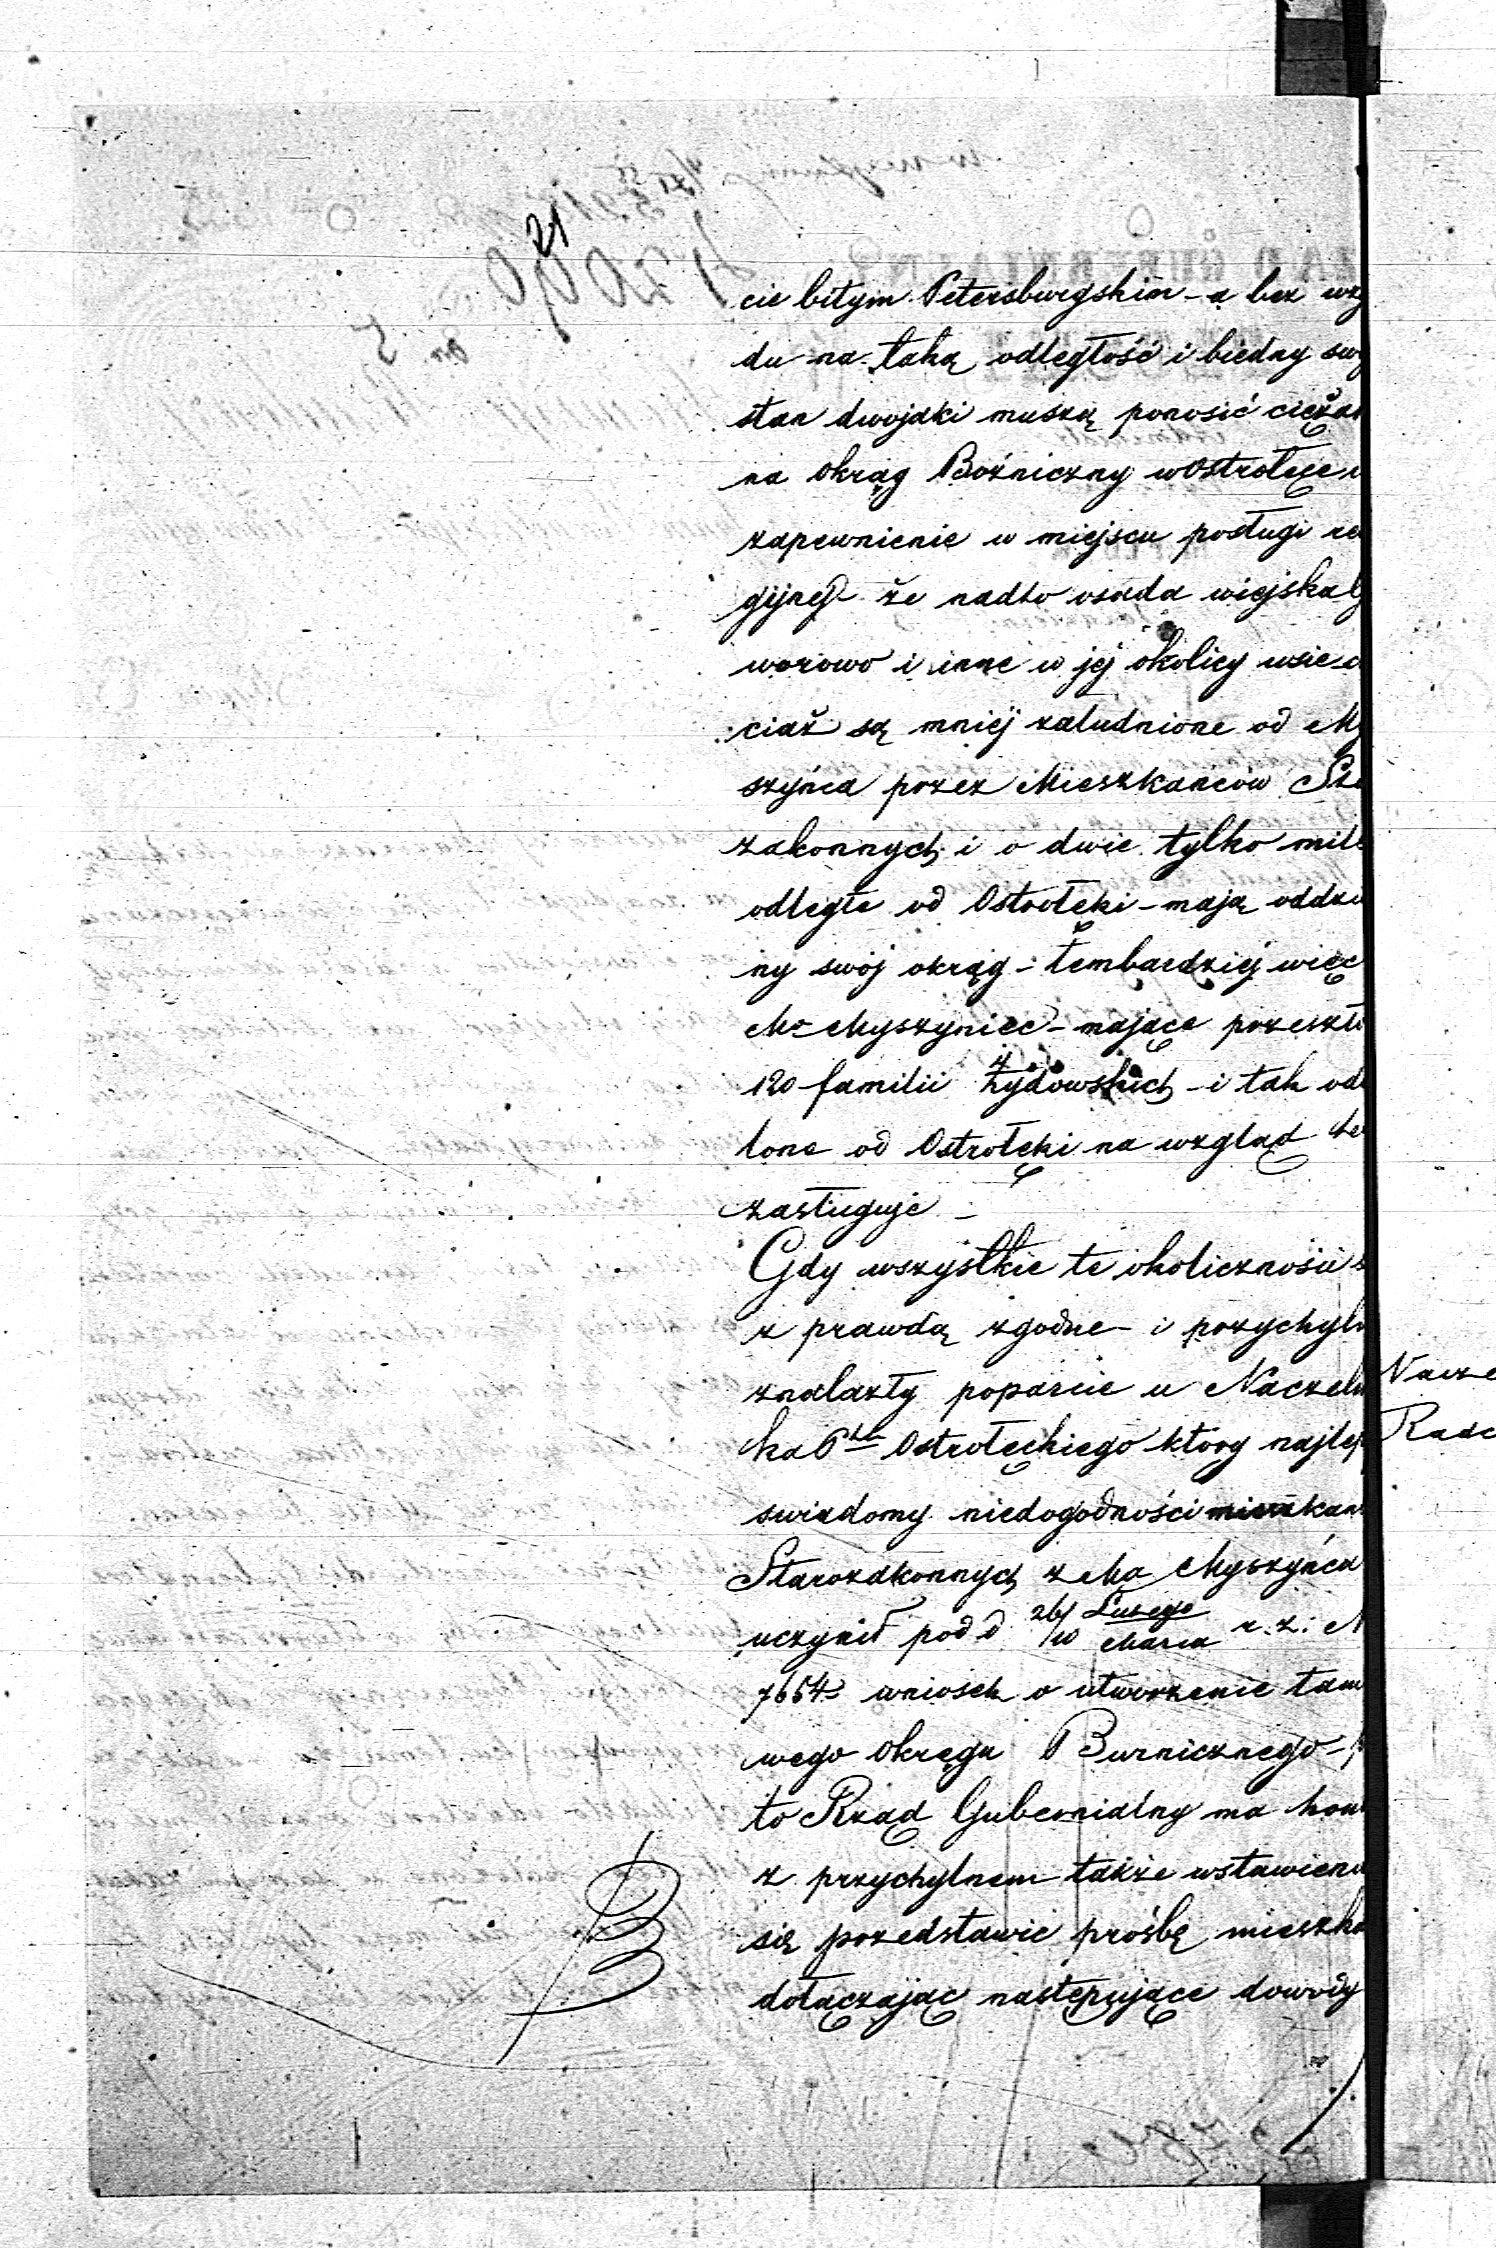 cie bitym Petersburgskim - a bez wzg
du na taką odległość i biedny swo
stan dwojaki muszą ponosić ciężar
na Okrąg Bożniczny w Ostrołęce i
zapewnienie w miejscu posługi re
gijnej - że nadto osada wiejska
worowo i inne w jej okolicy wsie
ciaż są mniej zaludnione od My
szyńca przez Mieszkańców Sta
zakonnych i o dwie tylko mile
odległe od Ostrołęki - mają oddzie
ny swój okrąg - tembardziej więc
Mo Myszyniec - mające przeszło
120 familii Żydowskich - i tak odd
lone od Ostrołęki na wzgląd ten
zasługuje -
Gdy wszystkie te okoliczności s
z prawdą zgodne - i przychyln
znalazły poparcie u Naczeln
ka Ptu Ostrołęckiego który najlep
swiadomy niedogodności mieszkań
Starozakonnych z Ma Myszyńca
uczynił pod d 26/10 Lutego/Marca r. z: N
7654 wniosek o utworzenie tam
wego Okręgu Burnicznego - p
to Rząd Gubernialny ma hon
z przychylnem także wstawieni
się przedstawić prośbę mieszka
dołączając następujące dowody
Nacze
Radc